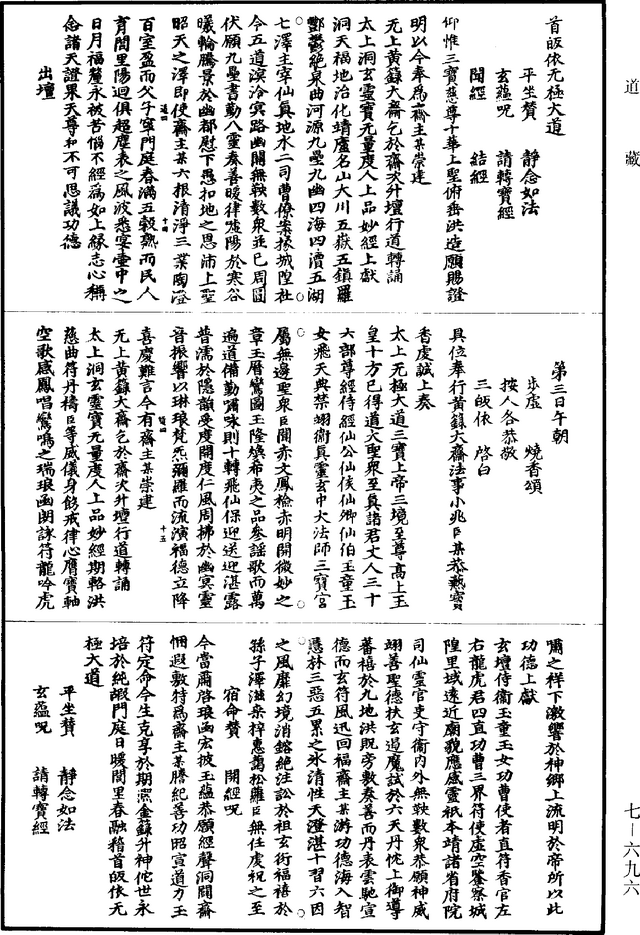 道藏
首皈依无極大道
平坐贊　靜念如法
玄蘊呪　請轉寶經
開經　結經
仰惟三寶慈尊十華上聖俯垂洪造願賜證
明以今奉為齋主某崇建
无上黃籙大齋乞於齋次升壇行道轉誦
太上洞玄靈寶无量度人上品妙經上獻
洞天福地治化靖廬名山大川五嶽五鎮羅
酆鬱絶泉曲河源九壘九幽四海四瀆五湖
七澤主宰仙眞地水二司曹僚案掾城隍社
令五道溟泠冥路幽關無鞅數衆並已周圓
伏願九壘書勤八靈奏善暖律噓陽於寒谷
曦輪騰景於幽都慰下愚扣地之恩沛上聖
昭天之澤即使齋主某六根清淨三業陶澄
百室盈而父子寧門庭春滿五穀熟而民人
育閭里陽迴俱超塵表之風波悉宴壺中之
日月福釐永被苦惱不經爲如上緣志心稱
念諸天證果天尊和不可思議功德
出壇
第三日午朝
步虛　燒香頌
按人各恭敬
三皈依　啓白
具位奉行黃籙大齋法事小兆臣某恭爇寶
香虔誠上奏
太上无極大道三寶上帝三境至尊高上玉
皇十方已得道大聖衆至眞諸君丈人三十
六部尊經侍經仙公仙侯仙卿仙伯玉童玉
女飛天典禁翊衛眞靈玄中大法師三寶官
屬無邊聖衆臣聞赤文鳳檢亦明開微妙之
章玉曆鸞圖玉隆煥希夷之品參謡歌而萬
遍道備勤嘯咏則十轉飛仙保迎送迎湛露
普濡於隱韻受度開度仁風周拂於幽冥靈
音振響以琳琅梵炁彌羅而流演福德立降
喜慶難言今有齋主某崇建
无上黃籙大齋乞於齋次升壇行道轉誦
太上洞玄靈寶无量度人上品妙經期輅洪
慈曲符丹禱臣等威儀身飭戒律心膺寶軸
空歌感鳳唱鸞鳴之瑞琅函朗詠符龍吟虎
嘯之祥下激響於神鄉上流明於帝所以此
功德上獻
玄壇侍衛玉童玉女功曹使者直符香官左
右龍虎君四直功曹三界符使虛空鑒察城
隍里域遠近廟貌應感靈祇本靖諸省府院
司仙靈官吏守衛内外無鞅數衆恭願神威
翊善聖德扶玄過魔試於六天丹忱上御導
蕃禧於九地洪貺旁敷奏善而丹表雲馳宣
德而玄符風迅回福齋主某游功德海入智
慧林三惡五累之氷清性天澄湛十習六因
之風靡幻境消鎔絶注訟於祖玄衍福禧於
孫子澤滋桒梓惠藹松蘿臣無任虔祝之至
宿命贊　開經呪
今當肅啓琅函宏披玉蘊恭願經聲洞聞齋
悃遐敷特爲齋主某謄紀善功昭宣道力玉
符定命今生克享於期熙金籙升神佗世永
培於純嘏門庭日暖閭里春融稽首皈依无
極大道
平坐贊　靜念如法
玄蘊呪　請轉寶經
七一六九六